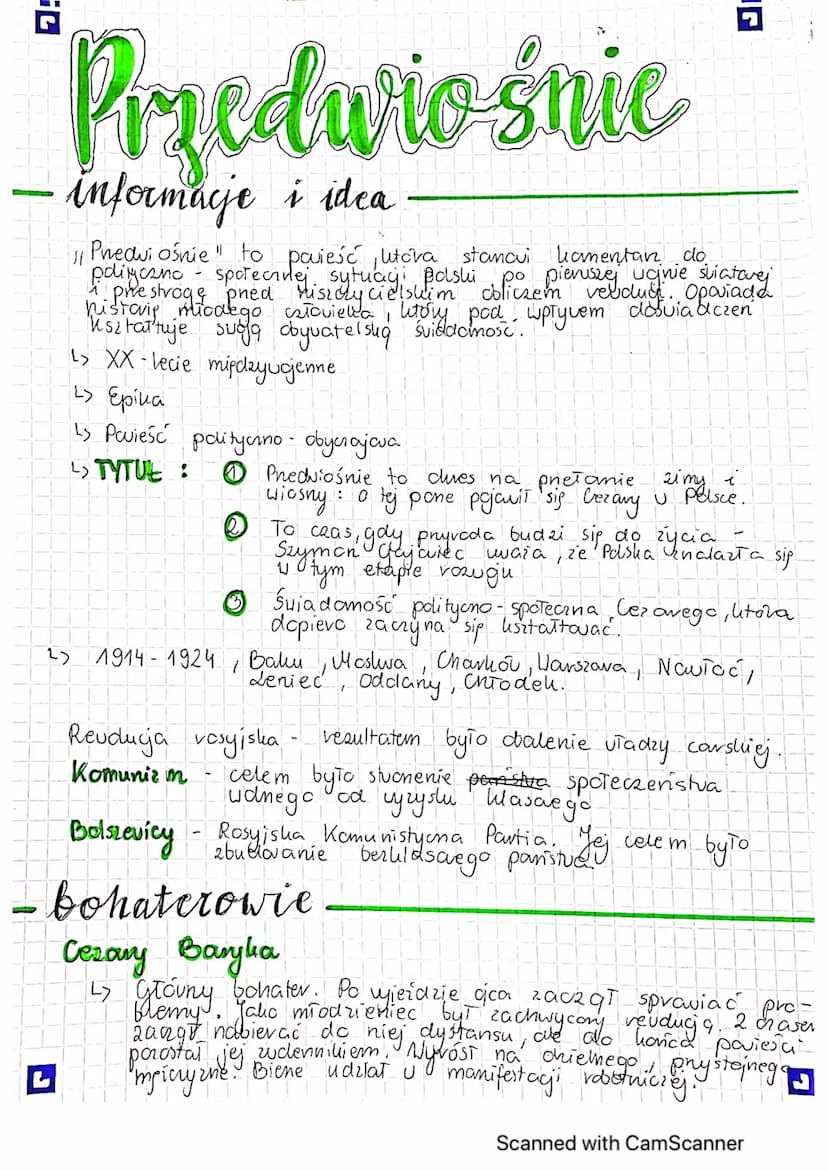 Przedwiośnie
informacje i idea
„Przedwiośnie" to powieść, która stanowi komentarz do
polityczno - społecznej sytuacji Polski po pierwszej wojnie światowej
i przestrogę przed niszczycielskim obliczem rewolucji. Opowiada
historię młodego człowieka, który pod wpływem doświadczeń
kształtuje swoją obywatelską świadomość.
↳ XX-lecie międzywojenne
↳ Epika
↳ Powieść polityczno - obyczajowa
↳ TYTUŁ : ① Przedwiośnie to okres na przełomie zimy i
wiosny : o tej porze pojawił się Cezary w Polsce.
② To czas, gdy przyroda budzi się do życia -
Szymon Gajowiec uważa, że Polska znalazła się
w tym etapie rozwoju
③ Świadomość polityczno - społeczna Cezarego, która
dopiero zaczyna się kształtować.
↳ 1914 - 1924, Baku, Moskwa, Charków, Warszawa, Nawłoć,
Leniec, Odolany, Chłodek.
Rewolucja rosyjska - rezultatem było obalenie władzy carskiej.
Komunizm - celem było stworzenie państwa społeczeństwa
wolnego od wyzysku klasowego
Bolszewicy - Rosyjska Komunistyczna Partia. Jej celem było
zbudowanie bezklasowego państwa.
bohaterowie
Cezary Baryka
↳ Główny bohater. Po wyjeździe ojca zaczął sprawiać pro-
blemy. Jako młodzieniec był zachwycony rewolucją. Z czasem
zaczął nabierać do niej dystansu, ale do końca powieści
pozostał jej zwolennikiem. Wyrósł na dzielnego, przystojnego
mężczyznę. Bierze udział w manifestacji robotniczej.
Scanned with CamScanner